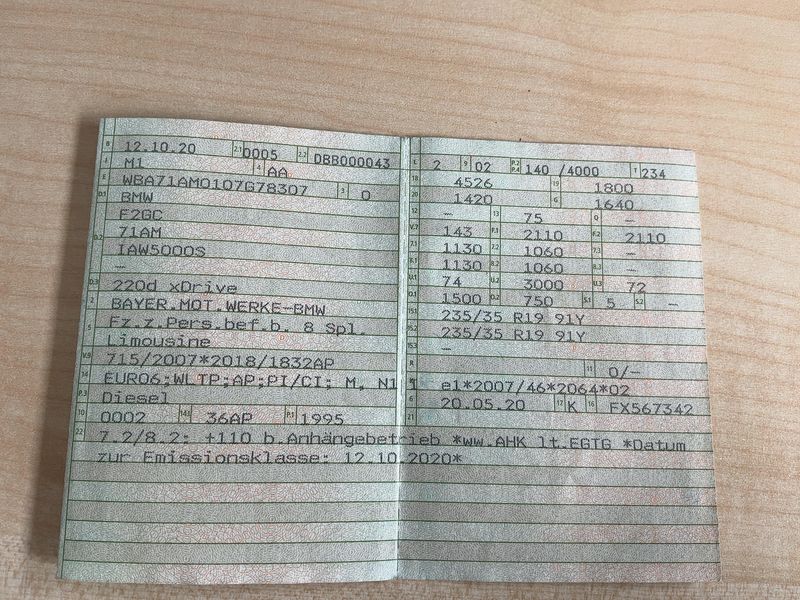 B 12.10.20 2.1 0005 2.2 DBB000043
J M1 4 AA
E WBA71AM0107G78307 3 0
D.1 BMW
F2GC
D.2 71AM
IAW5000S
–
D.3 220d xDrive
2 BAYER.MOT.WERKE-BMW
5 Fz.z.Pers.bef.b. 8 Spl.
Limousine
V.9 715/2007*2018/1832AP
14 EURO6;WLTP;AP;PI/CI; M, N1 I
P.3 Diesel
10 0002 14.1 36AP P.1 1995
22 7.2/8.2: +110 b.Anhängebetrieb *ww.AHK lt.EGTG *Datum
zur Emissionsklasse: 12.10.2020*
L 2 9 02 P.2 P.4 140 /4000 T 234
18 4526 19 1800
20 1420 G 1640
12 – 13 75 Q –
V.7 143 F.1 2110 F.2 2110
7.1 1130 7.2 1060 7.3 –
8.1 1130 8.2 1060 8.3 –
U.1 74 U.2 3000 U.3 72
O.1 1500 O.2 750 S.1 5 S.2 –
15.1 235/35 R19 91Y
15.2 235/35 R19 91Y
15.3 –
R 11 0/–
K e1*2007/46*2064*02
6 20.05.20 17 K 16 FX567342
21